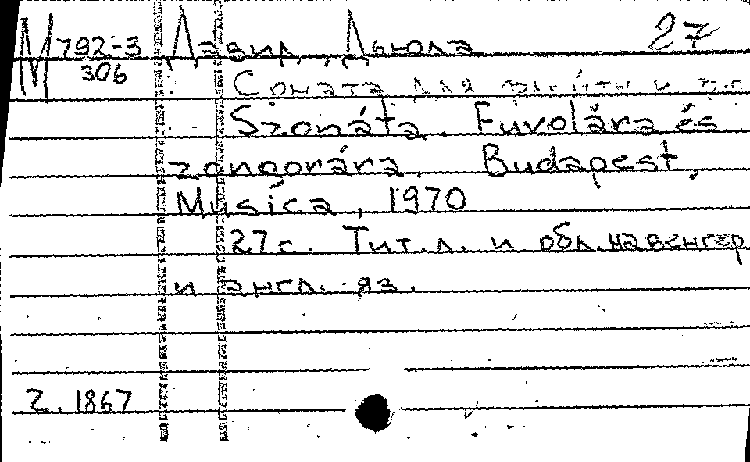 М 792-3 Давид, Дьюла 27
306
Соната для флейты и
Szonáta. Fuvolára és
zongorára. Budapest,
Musica, 1970
27 с. Тит. л. и обл. на венгер
и англ. яз.
Z. 1867